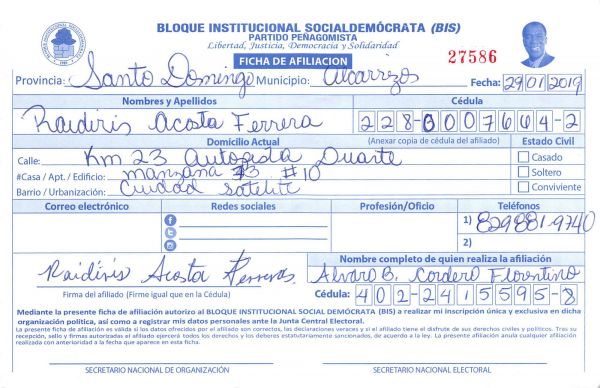 BLOQUE INSTITUCIONAL SOCIALDEMÓCRATA (BIS)
PARTIDO PEÑAGOMISTA
Libertad, Justicia, Democracia y Solidaridad
FICHA DE AFILIACION
27586
Provincia: Santo Domingo Municipio: Alcarrizos Fecha: 29/01/2019
Nombres y Apellidos Cédula
Raidiris Acosta Ferrera 228-0007664-2
Domicilio Actual (Anexar copia de cédula del afiliado) Estado Civil
Calle: Km 23 Autopista Duarte Casado
#Casa / Apt. / Edificio: manzana #3 #10 Soltero
Barrio / Urbanización: Ciudad Satelite Conviviente
Correo electrónico Redes sociales Profesión/Oficio Teléfonos
1) 829 881-9740
2)
Nombre completo de quien realiza la afiliación
Raidiris Acosta Ferreras Alvaro B. Cordero Florentino
Firma del afiliado (Firme igual que en la Cédula) Cédula: 402-2415595-8
Mediante la presente ficha de afiliación autorizo al BLOQUE INSTITUCIONAL SOCIAL DEMÓCRATA (BIS) a realizar mi inscripción única y exclusiva en dicha
organización política, así como a registrar mis datos personales ante la Junta Central Electoral.
La presente ficha de afiliación es válida si los datos ofrecidos por el afiliado son correctos, las declaraciones veraces y si el afiliado tiene el disfrute de sus derechos civiles y políticos. Tras su
recepción, sello y firmas autorizadas el afiliado ejercerá todos los derechos y los deberes estatutariamente sancionados, de acuerdo a la ley. La presente afiliación anula cualquier afiliación
realizada con anterioridad a la fecha que aparece en esta ficha.
SECRETARIO NACIONAL DE ORGANIZACIÓN SECRETARIO NACIONAL ELECTORAL